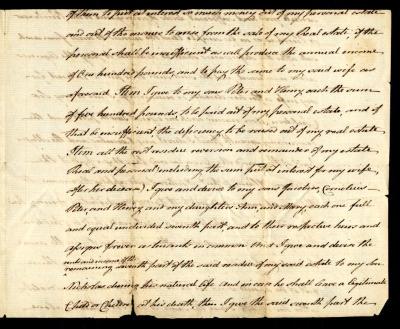 of them to put at interest so much money out of my personal estate
and out of the monies to arise from the sale of my Real estate, if the
personal shall be insufficient as will produce the annual income
of One hundred pounds, and to pay the same to my said wife as
aforesaid Item I give to my sons Peter and Henry each the sum
of five hundred pounds, to be paid out of my personal estate, and if
that be insufficient the deficiency to be raised out of my real estate
Item all the rest residue reversion and remainder of my estate
Real and personal (including the sum put at interest for my wife
after her decease) I give and devise to my sons Jacobus, Cornelius
Peter, and Henry and my daughters Ann, and Mary, each one full
and equal undivided seventh part, and to their respective heirs and
assigns forever as tenants in common And I give and devise the
use and income of the
remaining seventh part of the said residue of my said estate to my Son
Nicholas during his natural life And in case he shall leave a legitimate
Child or Children at his death, then I give the said seventh part the